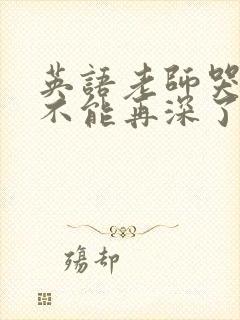 英語老師哭
不能再深了
殤却